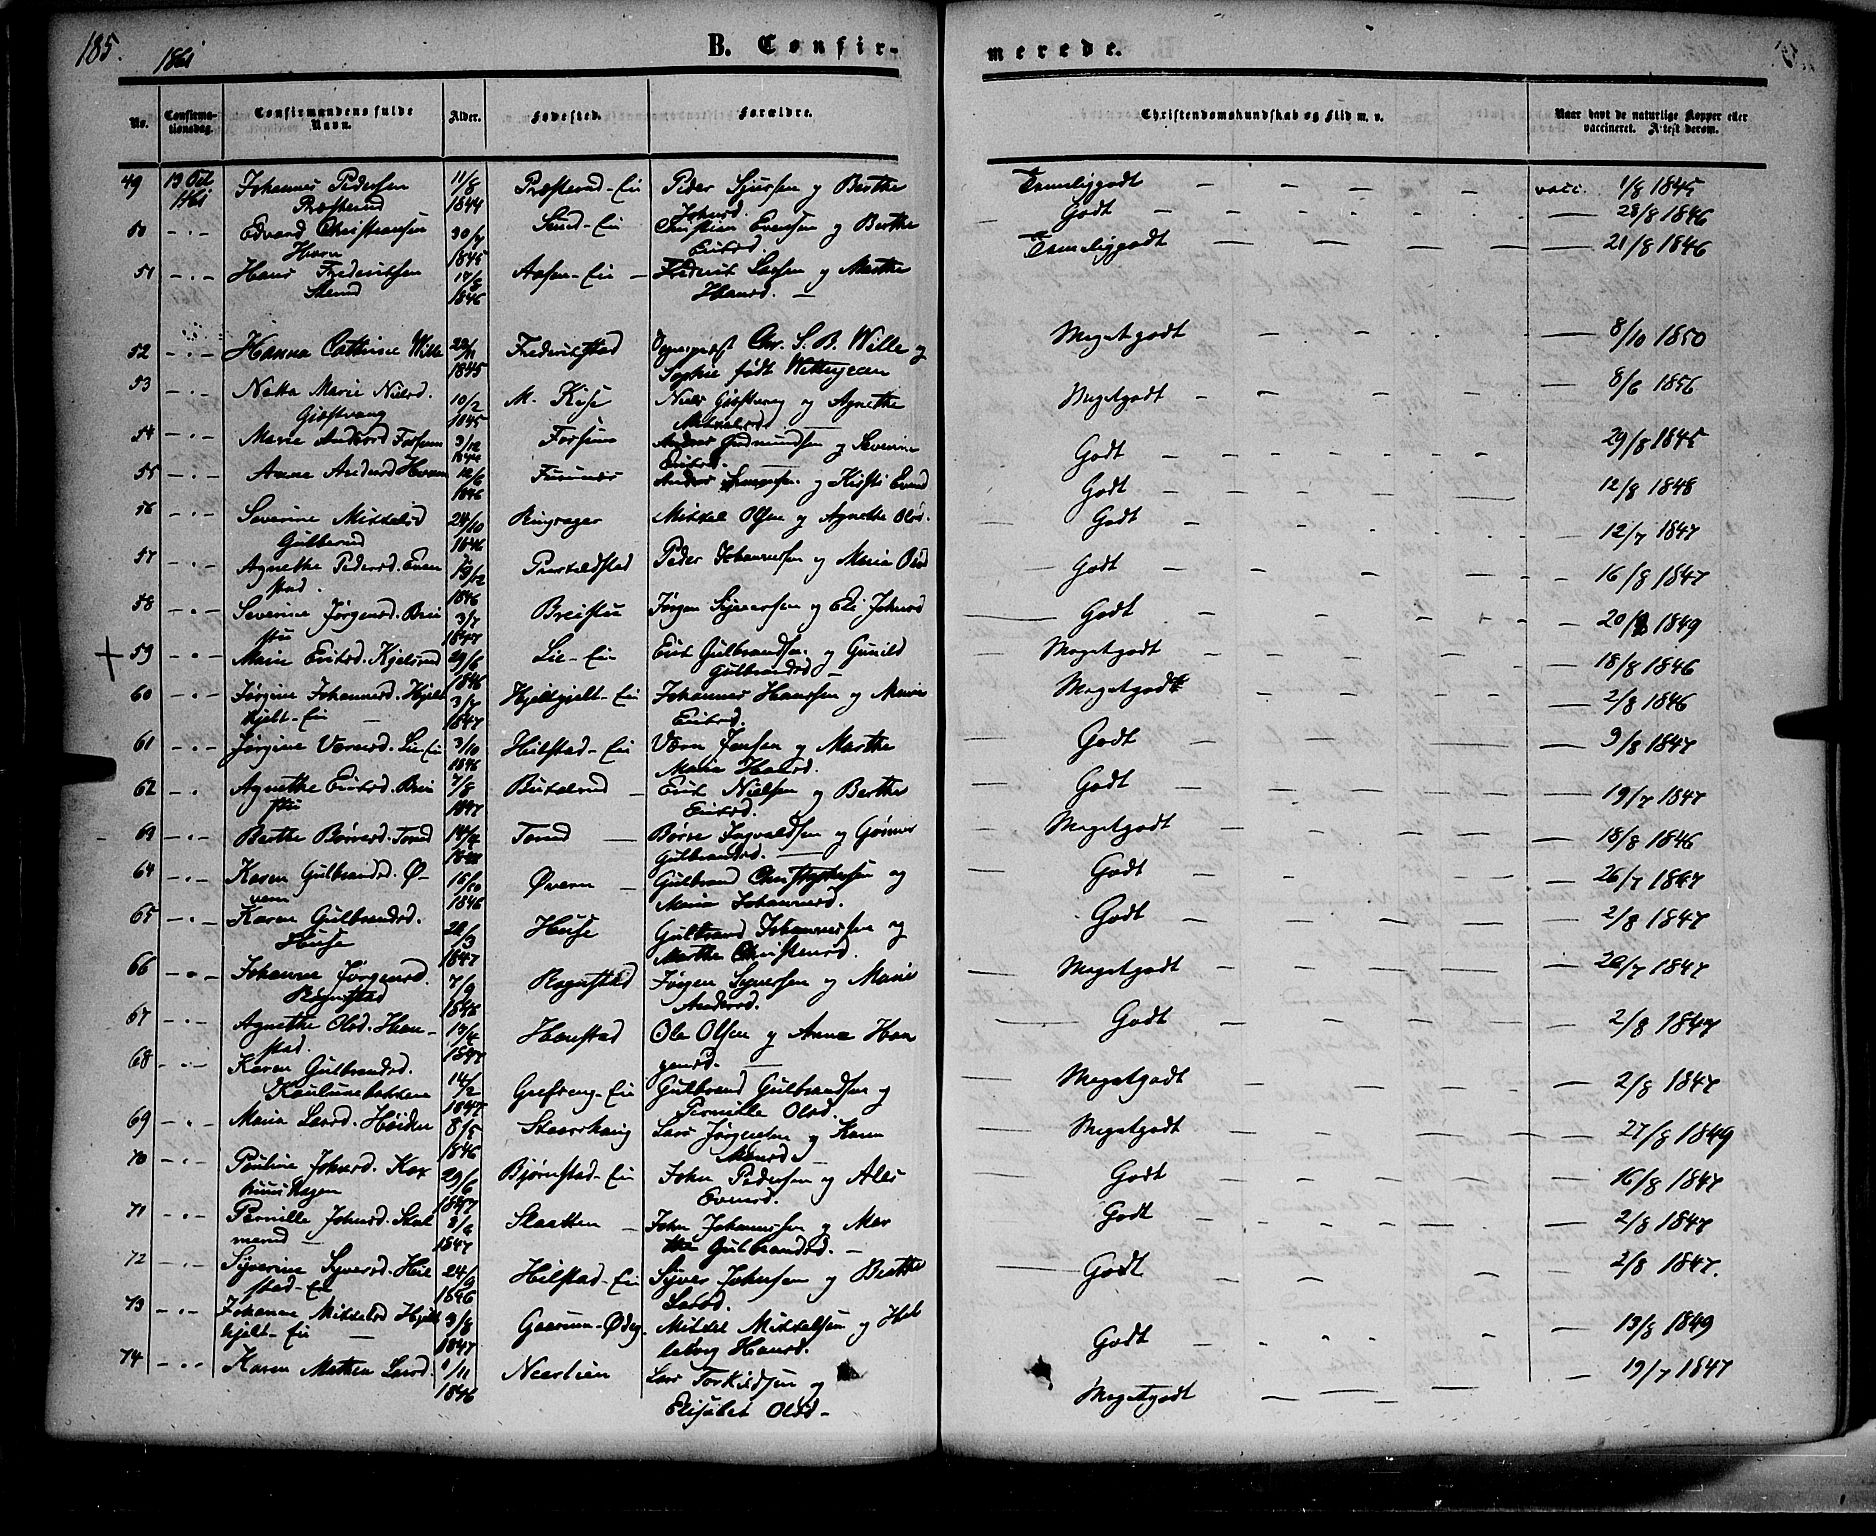 185.
1861
B. Confir-
merede.
No.
Confirma-
tionsdag.
Confirmandens fulde
Navn.
Alder.
Fødested.
Forældre.
Christendomskundskab og Flid m. v.
Naar havt de naturlige Kopper eller
vaccineret. Attest derom.
49 13 Oct 1861 Johannes Pedersen 11/8 1844 Præsterud-Ei Peder Sjursen og Berthe Johnsd. Temeliggodt - - - - - vacc. 1/8 1845
Præsterud
50 - " - Edvard Christiansen 30/7 1845 Sund-Ei Christian Evensen og Berthe Ericsd. Godt - - - - - 28/8 1846
Havn
51 - " - Hans Frederiksen 17/8 1846 Aasen-Ei - Frederik Larsen og Marthe Hansd. - Temeliggodt - - - - 21/8 1846
52 - " - Hanna Cathrine Wille 23/11 1845 Frederikstad Chr. S. B. Wille og Sophie født Meget godt - - - - 8/10 1850
53 - " - Marie Nielsd. Gjestvang 10/2 1845 M. Kise Niels Gjestvang og Agnethe Mikkelsd Megetgodt - - - - 8/6 1856
54 - " - Marie Andersd Forsum 3/12 1844 Forsum Anders Gudmundsen og Severine Ericsd. - Godt - - - - 29/8 1845
55 - " - Anne Andersd. 12/6 1846 Furunes Anders og Kirsti Evensd Godt - - - - 12/8 1848
56 - " - Severine Mikkelsd Gulberud 24/10 1846 Ringsager Mikkel Olsen og Agnethe Olsd. Godt - - - - 12/7 1847
57 - " - Agnethe Pedersd. Evenstad. 19/12 1846 Peder Johannessen og Maria Olsd Godt - - - - 16/8 1847
58 - " - Severine Jørgensd. Breistu 3/7 1847 Breistu Jørgen Syversen og Eli Johnsd Godt - - - - 20/8 1849
+ 59 - " - Marie Ericsd. Kjelsrud 29/6 1846 Lie-Ei Eric Gulbrandsen og Gunild Gulbrandsd - Megetgodt - - - - 18/8 1846
60 - " - Jørgine Johannesd. Hjeltkjelt-Ei - 3/7 1847 Hjeltkjelt-Ei Johannes Hansen og Marie Ericsd. Megetgodt - - - - 2/8 1846
61 - " - Jørgine Værnsd. Lie-Ei 3/10 1846 Hilstad-Ei Værn Jensen og Marthe Marie Hansd. Godt - - - - 9/8 1847
62 - " - Agnethe Ericsd. Breistu 7/8 1847 Eric Nielsen og Berthe Ericsd. Godt - - - - 19/7 1847
63 - " - Berthe Børresd. Torud 14/4 Torud - Børre Ingvaldsen og Gulbrandsd. - Megetgodt - - - - 18/8 1846
64 - " - Karen Gulbrandsd. Øvern 15/10 1846 Øvern - Gulbrand Christophersen og Maria Johannesd. Godt - - - - 26/7 1847
65 - " - Karen Gulbrandsd. Huse 28/3 1847 Huse Gulbrand Johannessen og Marthe Christensd. Godt - - - - 2/8 1847
66 - " - Johanne Jørgensd. Rognstad 7/9 1846 Rognstad Jørgen Syversen og Marie Andersd. Megetgodt - - - - 20/7 1847
67 - " - Agnethe Olsd. Hanstad. 13/4 1847 Hanstad Ole Olsen og Anne Haagensd. - Godt - - - - 2/8 1847
68 - " - Karen Gulbrandsd. 14/2 1847 Grefseng-Ei Gulbrand Gulbrandsen og Pernille Olsd. Megetgodt - - - - 2/8 1847
69 - " - Maria Larsd. Høiden 8/5 1846 Lars Jørgensen og Karen Megetgodt - - - - 27/8 1849
70 - " - Pauline Johnsd. 29/6 1847 Bjørnstad-Ei John Pedersen og Ales Evensd. Godt - - - - 16/8 1847
71 - " - Pernille Johnsd. 2/6 1847 Slaatten - John Johannessen og Marthe Gulbrandsd. - Godt - - - - 2/8 1847
72 - " - Syverine Syversd. Hilstad-Ei 24/9 1846 Hilstad-Ei Syver Johnsen og Berthe Larsd. Godt - - - - 2/8 1847.
73 - " - Johanne Mikkelsd Hjeltkjelt-Ei - 3/8 1847 Gaarum-Ødeg. Mikkel Mikkelsen og Helleborg Hansd. Godt - - - - 13/8 1849
74 - " - Karen Mathea Larsd. 1/11 1846 Neerlien Lars Torkildsen og Elisabet Olsd - Megetgodt - - - - 19/7 1847